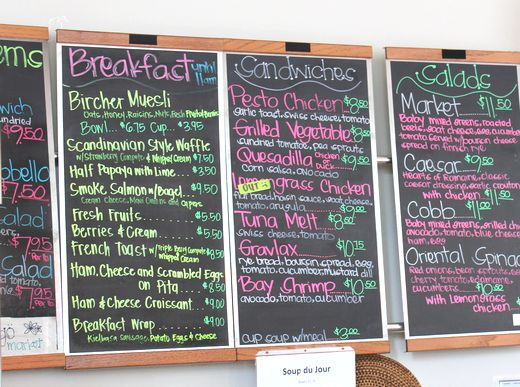 ems
wich
$9.50
bella
$7.50
alad
$7.95
Salad
$7.95
market
Breakfast until 11am
Bircher Muesli
Oats, Honey, Raisins, Nuts, Fresh
Bowl... $6.75 Cup... $3.95
Scandinavian Style Waffle
w/ Strawberry Compote & Whipped Cream $7.50
Half Papaya with Lime... $3.50
Smoke Salmon w/ Bagel... $9.50
Cream Cheese, Onions and Capers
Fresh Fruits... $5.50
Berries & Cream... $5.50
French Toast w/ Triple Berry Compote & Whipped Cream $8.50
Ham, Cheese and Scrambled Eggs
on Pita... $8.50
Ham & Cheese Croissant... $9.00
Breakfast Wrap... $9.00
Kielbasa sausage, Potato Eggs & Cheese
Sandwiches
Pesto Chicken
garlic toast, swiss cheese, tomato
Grilled Vegetable
sundried tomato, pea sprouts
Quesadilla chicken duck
corn salsa, avocado
OUT grass Chicken
flat bread, hoisin sauce, goat cheese,
tomato, arugula
Tuna Melt
swiss cheese, tomato
Gravlax $10.75
rye bread, boursin spread, egg,
tomato, cucumber, mustard dill
Bay Shrimp
avocado, tomato, cucumber
cup soup w/meal $3.00
Salads
Market $11.50
Baby mixed greens, roasted
beets, goat cheese, cucumber
tomato served w/ pourcel cheese
spread on french rye
Caesar $9.50
Hearts of Romaine, classic
Caesar dressing, garlic crouton
with chicken $11.50
Cobb $11.00
Baby mixed greens, grilled
avocado, tomato, blue cheese
ham, egg
Oriental Spinach
Red onions, bean sprouts,
cherry tomato, edamame,
cucumbers $10.00
with Lemongrass
chicken
Soup du Jour